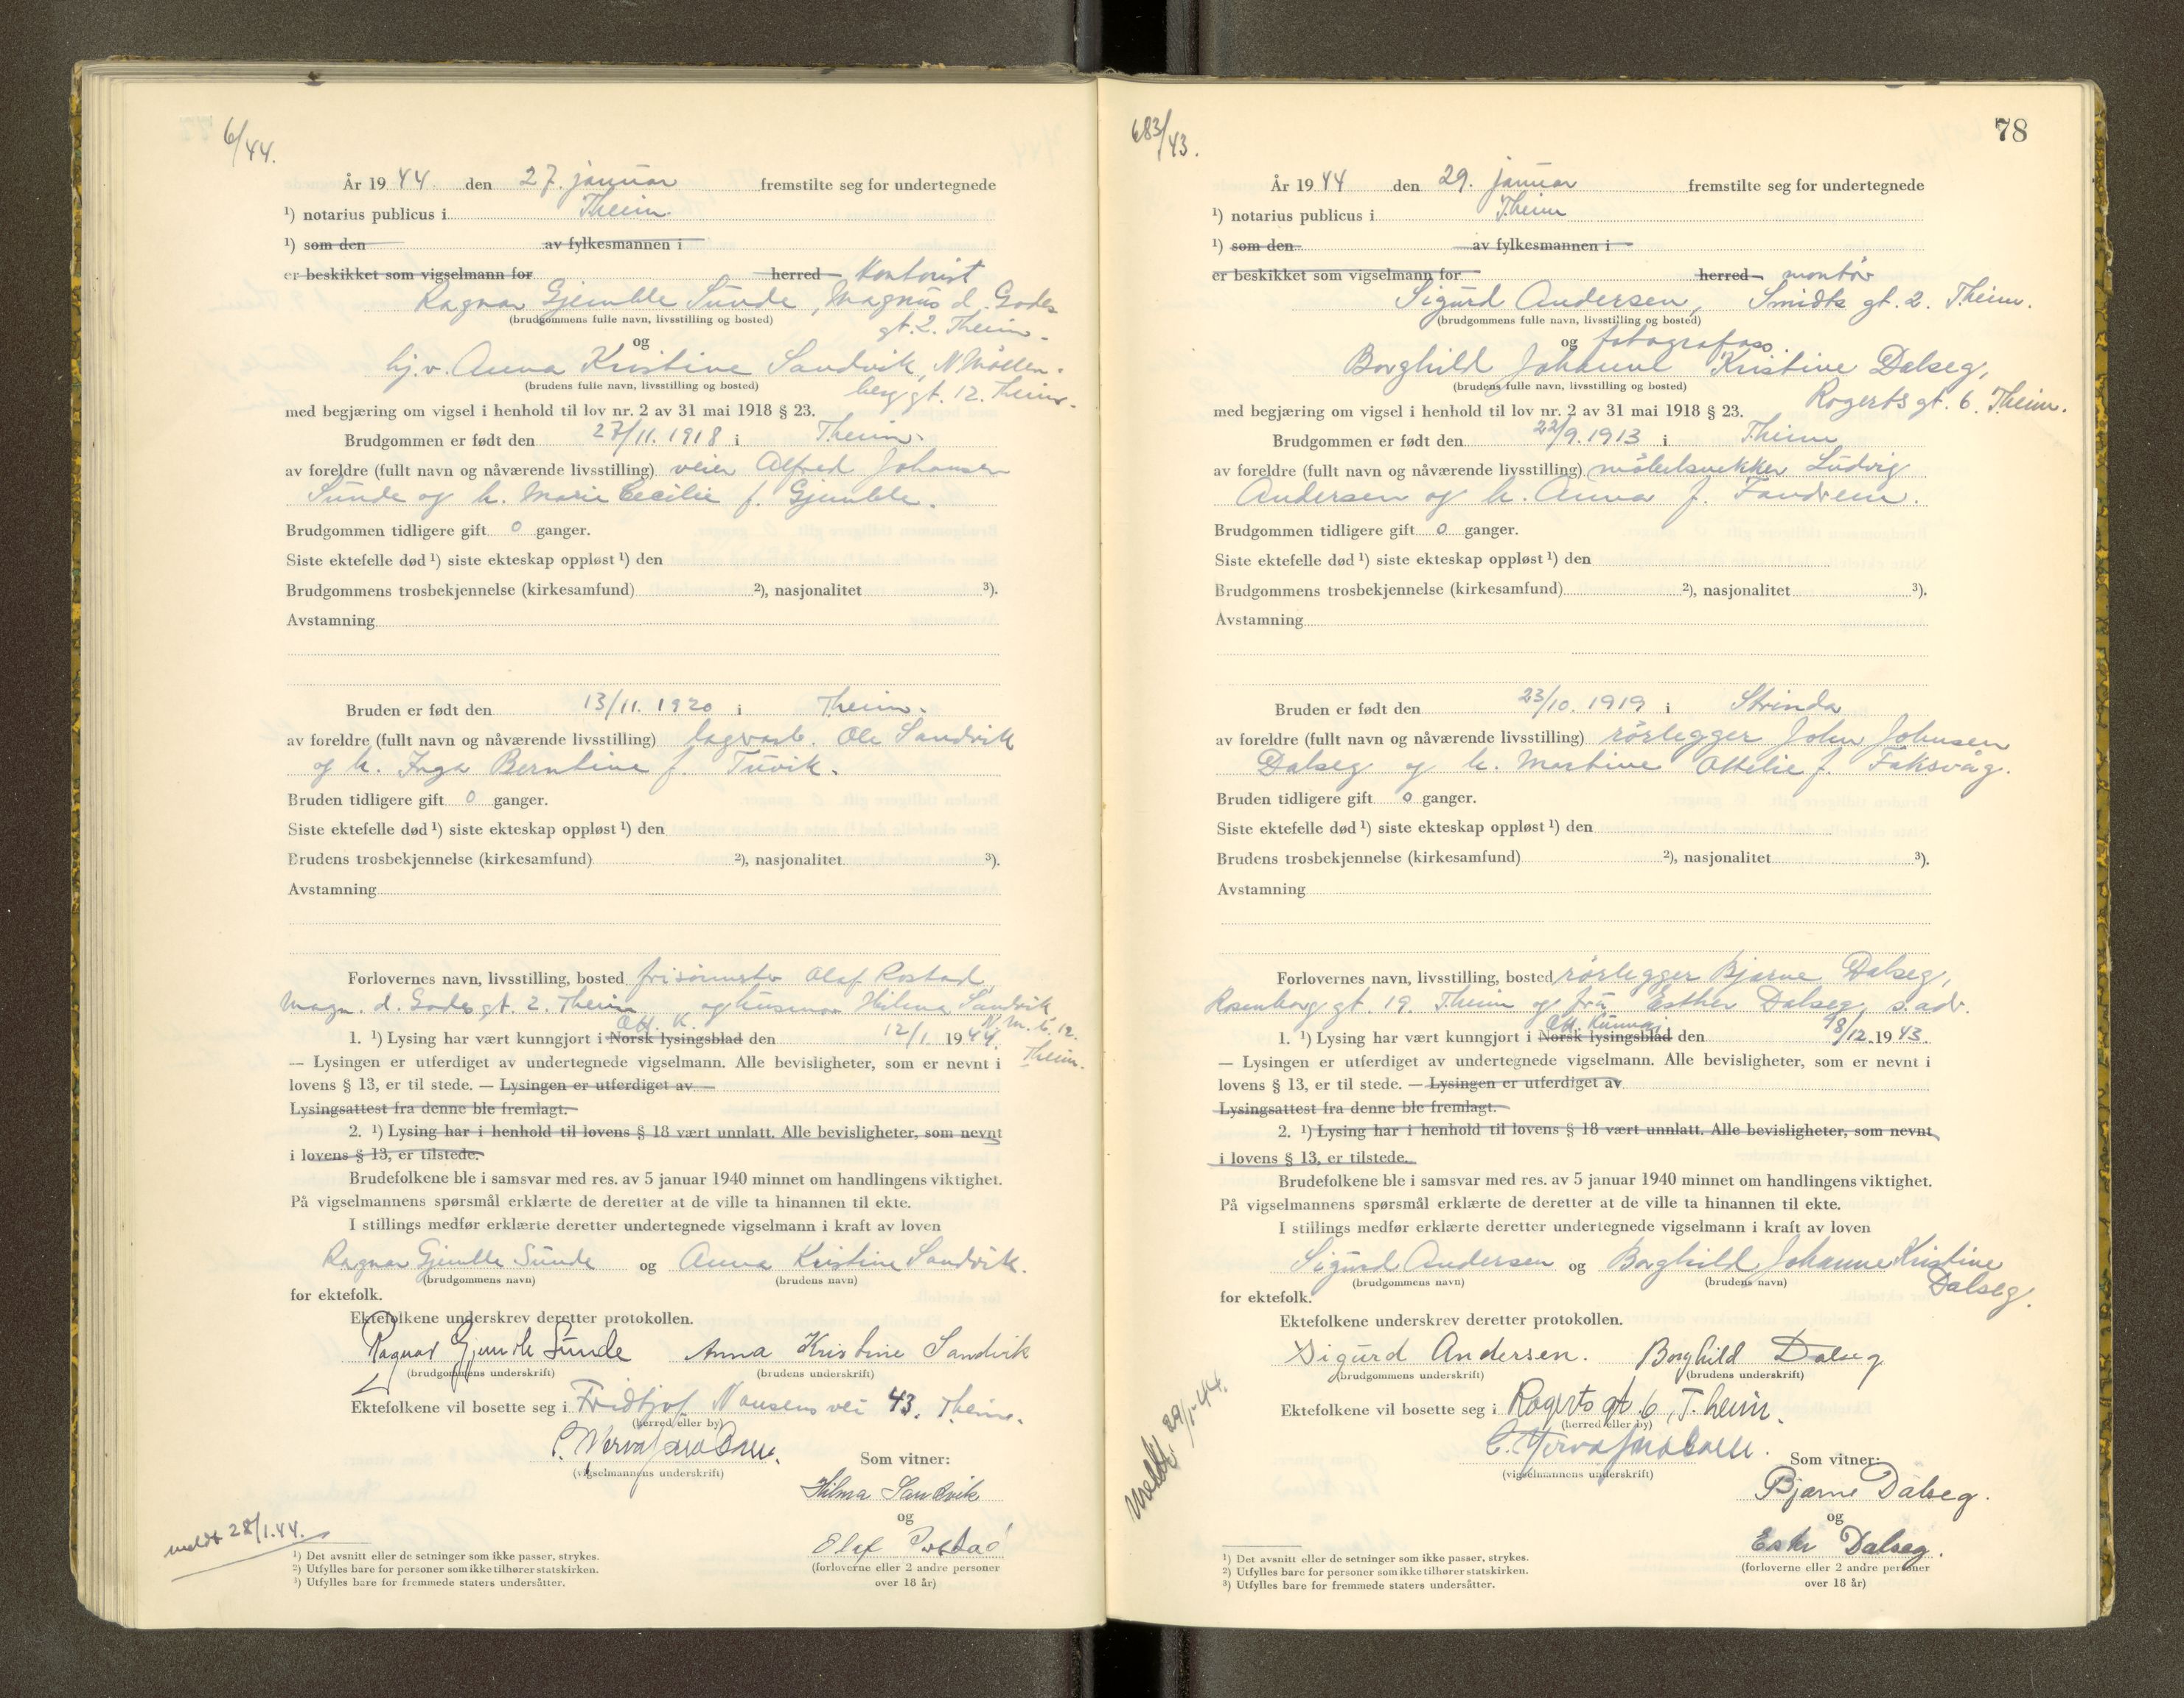 6/44.
År 1944. den 27. januar fremstilte seg for undertegnede
¹) notarius publicus i Theim.
¹) som den av fylkesmannen i
er beskikket som vigselmann for herred Kontorist
Ragnar Gjemble Sunde, Magnus d. Godes
(brudgommens fulle navn, livsstilling og bosted)
gt. 2. Theim.
og
hj.v. Anna Kristine Sandvik, N. Møllen-
(brudens fulle navn, livsstilling og bosted)
berg gt. 12. Theim.
med begjæring om vigsel i henhold til lov nr. 2 av 31 mai 1918 § 23.
Brudgommen er født den 27/11. 1918 i Theim.
av foreldre (fullt navn og nåværende livsstilling) veier Alfred Johansen
Sunde og h. Marie Cecilie f. Gjemble.
Brudgommen tidligere gift 0 ganger.
Siste ektefelle død ¹) siste ekteskap oppløst ¹) den
Brudgommens trosbekjennelse (kirkesamfund) ²), nasjonalitet ³).
Avstamning
Bruden er født den 13/11. 1920 i Theim.
av foreldre (fullt navn og nåværende livsstilling) lagerarb. Ole Sandvik
og h. Inga Berntine f. Tuvik.
Bruden tidligere gift 0 ganger.
Siste ektefelle død ¹) siste ekteskap oppløst ¹) den
Brudens trosbekjennelse (kirkesamfund) ²), nasjonalitet ³).
Avstamning
Forlovernes navn, livsstilling, bosted frisørmester Olaf Rostad,
Magn. d. Godes gt. 2. Theim og husmor Hilma Sandvik
Off. K. N. M. b. 12.
1. ¹) Lysing har vært kunngjort i Norsk lysingsblad den 12/1. 1944.
Theim.
— Lysingen er utferdiget av undertegnede vigselmann. Alle bevisligheter, som er nevnt i
lovens § 13, er til stede. — Lysingen er utferdiget av
Lysingsattest fra denne ble fremlagt.
2. ¹) Lysing har i henhold til lovens § 18 vært unnlatt. Alle bevisligheter, som nevnt
i lovens § 13, er tilstede.
Brudefolkene ble i samsvar med res. av 5 januar 1940 minnet om handlingens viktighet.
På vigselmannens spørsmål erklærte de deretter at de ville ta hinannen til ekte.
I stillings medfør erklærte deretter undertegnede vigselmann i kraft av loven
Ragnar Gjemble Sunde og Anna Kristine Sandvik.
(brudgommens navn) (brudens navn)
for ektefolk.
Ektefolkene underskrev deretter protokollen.
Ragnar Gjemble Sunde Anna Kristine Sandvik
(brudgommens underskrift) (brudens underskrift)
Ektefolkene vil bosette seg i Fridtjof Nansens vei 43. Theim.
(herred eller by)
(vigselmannens underskrift)
Som vitner:
Hilma Sandvik
og
Olaf Rostad
(forloverne eller 2 andre personer
over 18 år)
meldt 28/1.44.
¹) Det avsnitt eller de setninger som ikke passer, strykes.
²) Utfylles bare for personer som ikke tilhører statskirken.
³) Utfylles bare for fremmede staters undersåtter.
78
683/43.
År 1944 den 29. januar fremstilte seg for undertegnede
¹) notarius publicus i Theim
¹) som den av fylkesmannen i
er beskikket som vigselmann for herred montør
Sigurd Andersen, Smidts gt. 2. Theim.
(brudgommens fulle navn, livsstilling og bosted)
og fotografass.
Borghild Johanne Kristine Dalseg,
(brudens fulle navn, livsstilling og bosted)
Rogerts gt. 6. Theim.
med begjæring om vigsel i henhold til lov nr. 2 av 31 mai 1918 § 23.
Brudgommen er født den 22/9. 1913 i Theim
av foreldre (fullt navn og nåværende livsstilling) møbelsnekker Ludvig
Andersen og h. Anna f. Fandrem.
Brudgommen tidligere gift 0 ganger.
Siste ektefelle død ¹) siste ekteskap oppløst ¹) den
Brudgommens trosbekjennelse (kirkesamfund) ²), nasjonalitet ³).
Avstamning
Bruden er født den 23/10. 1919 i Strinda
av foreldre (fullt navn og nåværende livsstilling) rørlegger John Johnsen
Dalseg og h. Martine Ottelie f. Faksvåg.
Bruden tidligere gift 0 ganger.
Siste ektefelle død ¹) siste ekteskap oppløst ¹) den
Brudens trosbekjennelse (kirkesamfund) ²), nasjonalitet ³).
Avstamning
Forlovernes navn, livsstilling, bosted rørlegger Bjarne Dalseg,
Rosenborg gt. 19. Theim og fru Esther Dalseg, s. adr.
Off. Kunngj.
1. ¹) Lysing har vært kunngjort i Norsk lysingsblad den /12. 1943.
— Lysingen er utferdiget av undertegnede vigselmann. Alle bevisligheter, som er nevnt i
lovens § 13, er til stede. — Lysingen er utferdiget av
Lysingsattest fra denne ble fremlagt.
2. ¹) Lysing har i henhold til lovens § 18 vært unnlatt. Alle bevisligheter, som nevnt
i lovens § 13, er tilstede.
Brudefolkene ble i samsvar med res. av 5 januar 1940 minnet om handlingens viktighet.
På vigselmannens spørsmål erklærte de deretter at de ville ta hinannen til ekte.
I stillings medfør erklærte deretter undertegnede vigselmann i kraft av loven
Sigurd Andersen og Borghild Johanne Kristine
(brudgommens navn) (brudens navn) Dalseg.
for ektefolk.
Ektefolkene underskrev deretter protokollen.
Sigurd Andersen. Borghild Dalseg
(brudgommens underskrift) (brudens underskrift)
Ektefolkene vil bosette seg i Rogerts gt 6, T.heim.
(herred eller by)
(vigselmannens underskrift)
Som vitner:
Bjarne Dalseg.
og
Ester Dalseg.
(forloverne eller 2 andre personer
over 18 år)
Meldt 29/1-44.
¹) Det avsnitt eller de setninger som ikke passer, strykes.
²) Utfylles bare for personer som ikke tilhører statskirken.
³) Utfylles bare for fremmede staters undersåtter.